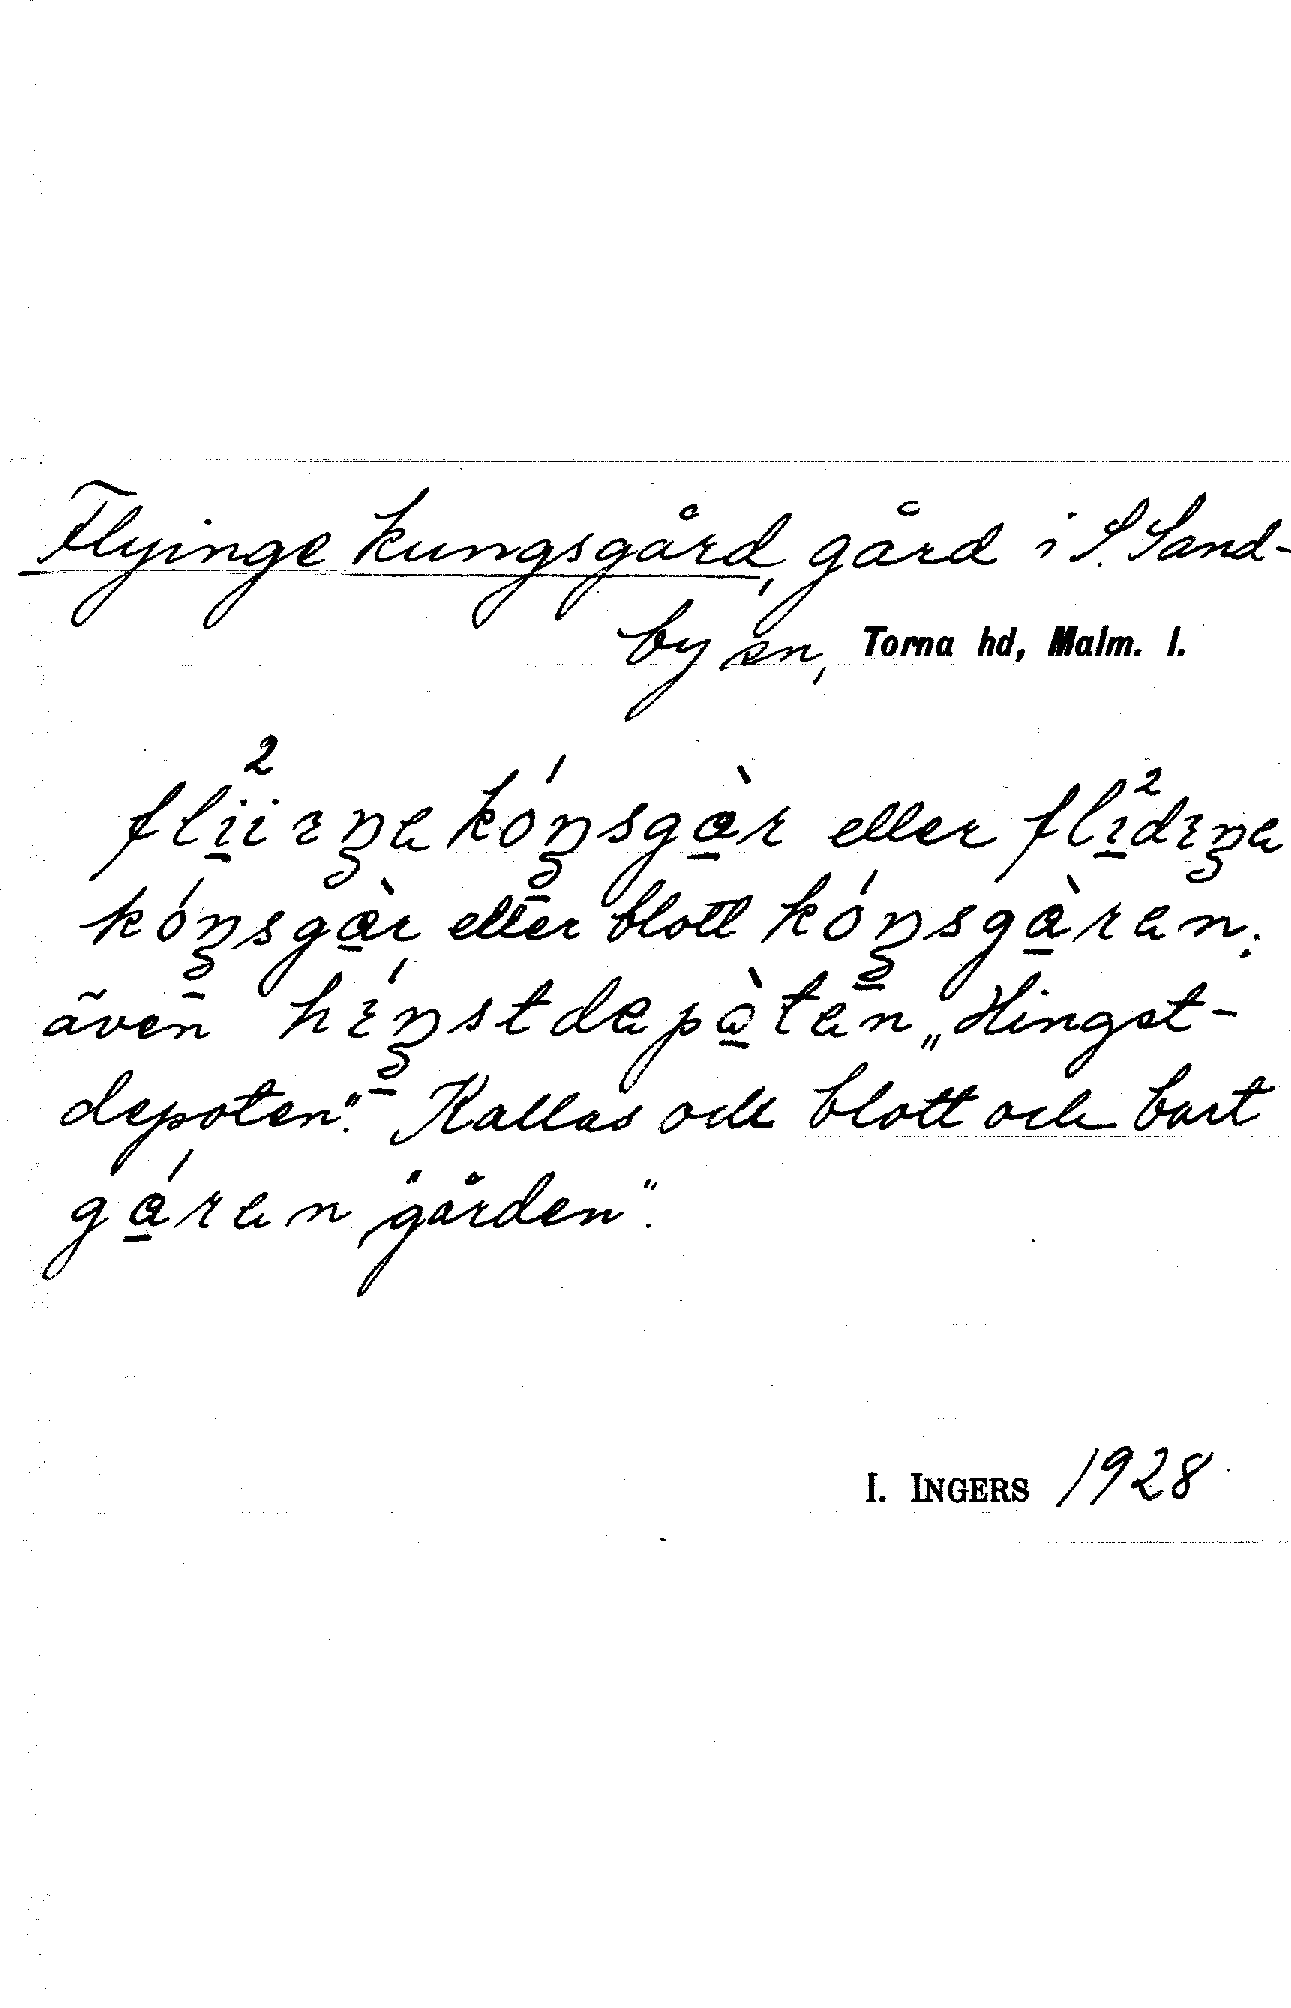 Flyinge kungsgård, gård i S. Sand-
by sn, Torna hd, Malm. l.
fli̱²iɪŋa kóŋsgà̱r eller fli̱²dɪŋa
kóŋsgà̱r, eller blott kóŋsgà̱ran;
även hɪ́ŋstdapà̱tan „Hingst-
depoten". Kallas ock blott och bart
gá̱ran „gården".
I. INGERS 1928